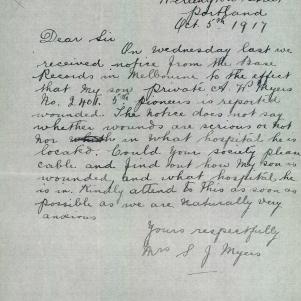 Portland
Oct. 5th 1917
Dear Sir
On Wednesday last we
received notice from the Base
Records in Melbourne to the effect
that My son private A. W. Myers
No. 2401. 5th pioneers is reported
wounded. The notice does not say
whether wounds are serious or not
nor in what hospital he is
locate. Could your society please
cable and find out how My son is
wounded, and what hospital he
is in. Kindly attend to this as soon as
possible as we are naturally very
anxious
Yours respectfully
Mrs S J Myers